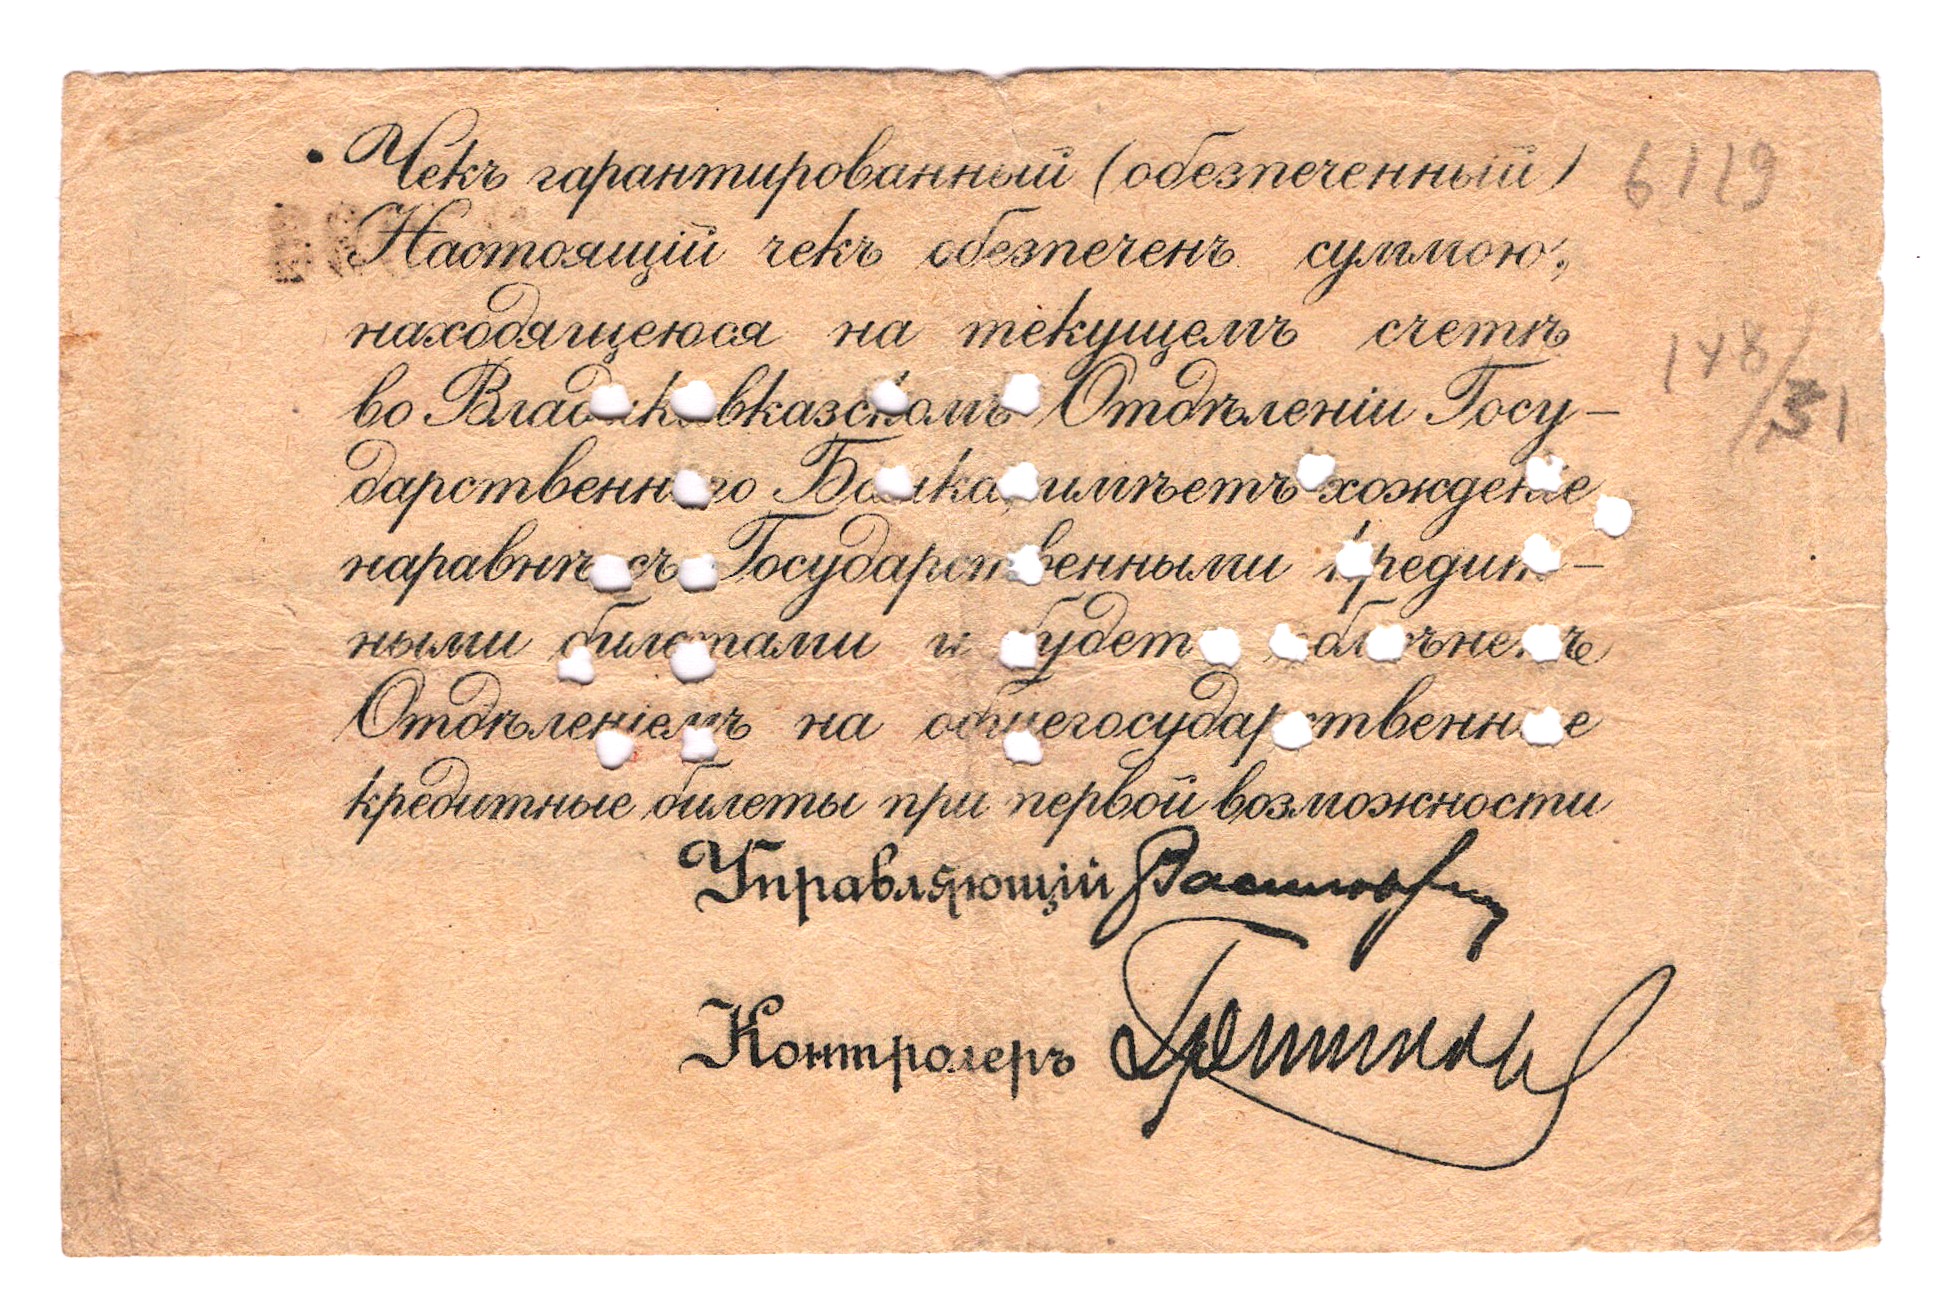 Чекъ гарантированный (обезпеченный)
Настоящій чекъ обезпеченъ суммою,
находящеюся на текущемъ счетѣ
во Владикавказскомъ Отдѣленіи Госу-
дарственнаго Банка, имѣетъ хожденіе
наравнѣ съ Государственными кредит-
ными билетами и будетъ обмѣненъ
Отдѣленіемъ на общегосударственные
кредитные билеты при первой возможности
Управляющій
Контролеръ
6119
148/31